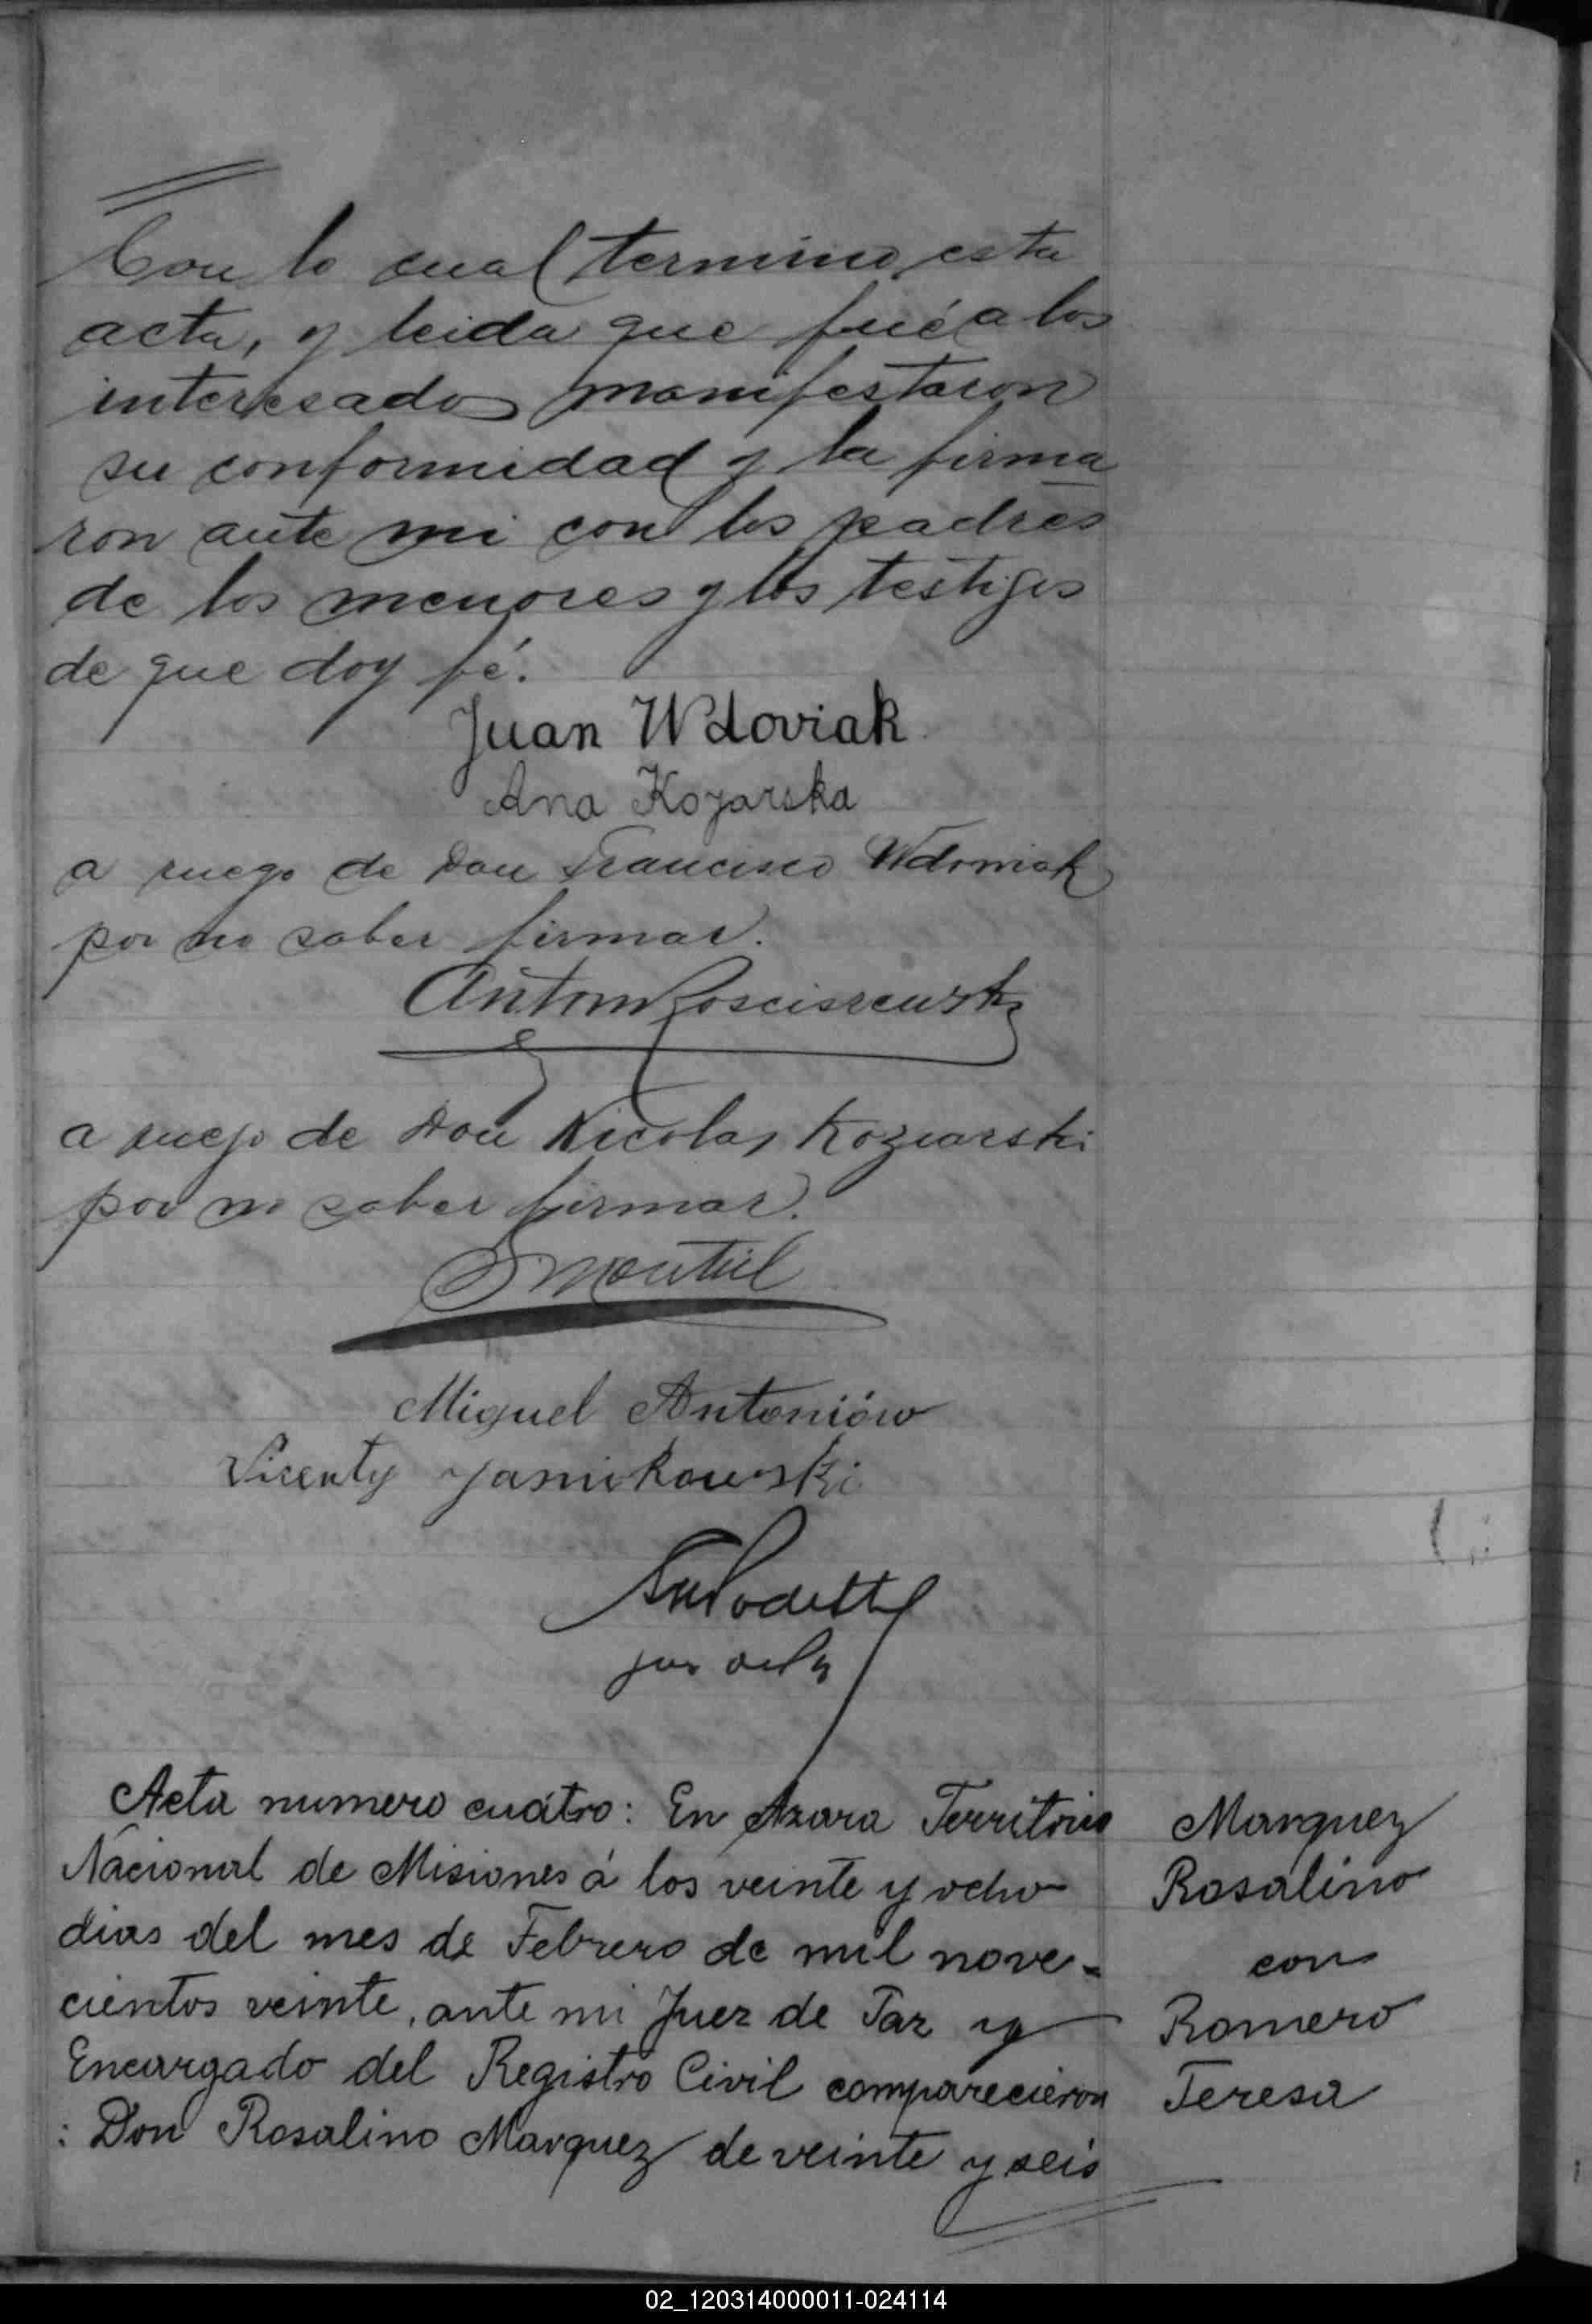 Con lo cual termino esta
acta, y leida que fué a los
interesados manifestaron
su conformidad y la firma
ron ante mi con los padres
de los menores y los testigos
de que doy fé.
Juan Wdoviak
Ana Kozarska
a ruego de Don Francisco Wdowiak
por no saber firmar.
Antoni Rosciszewski
a ruego de Don Nicolas Koziarski
por no saber firmar.
Montiel
Miguel Antoniów
Vicenty Janikowski
Acta numero cuátro: En Azara Territorio
Nacional de Misiones á los veinte y ocho
dias del mes de Febrero de mil nove-
cientos veinte, ante mi Juez de Paz y
Encargado del Registro Civil comparecieron
: Don Rosalino Marquez de veinte y seis
Marquez
Rosalino
con
Romero
Teresa
02_120314000011-024114